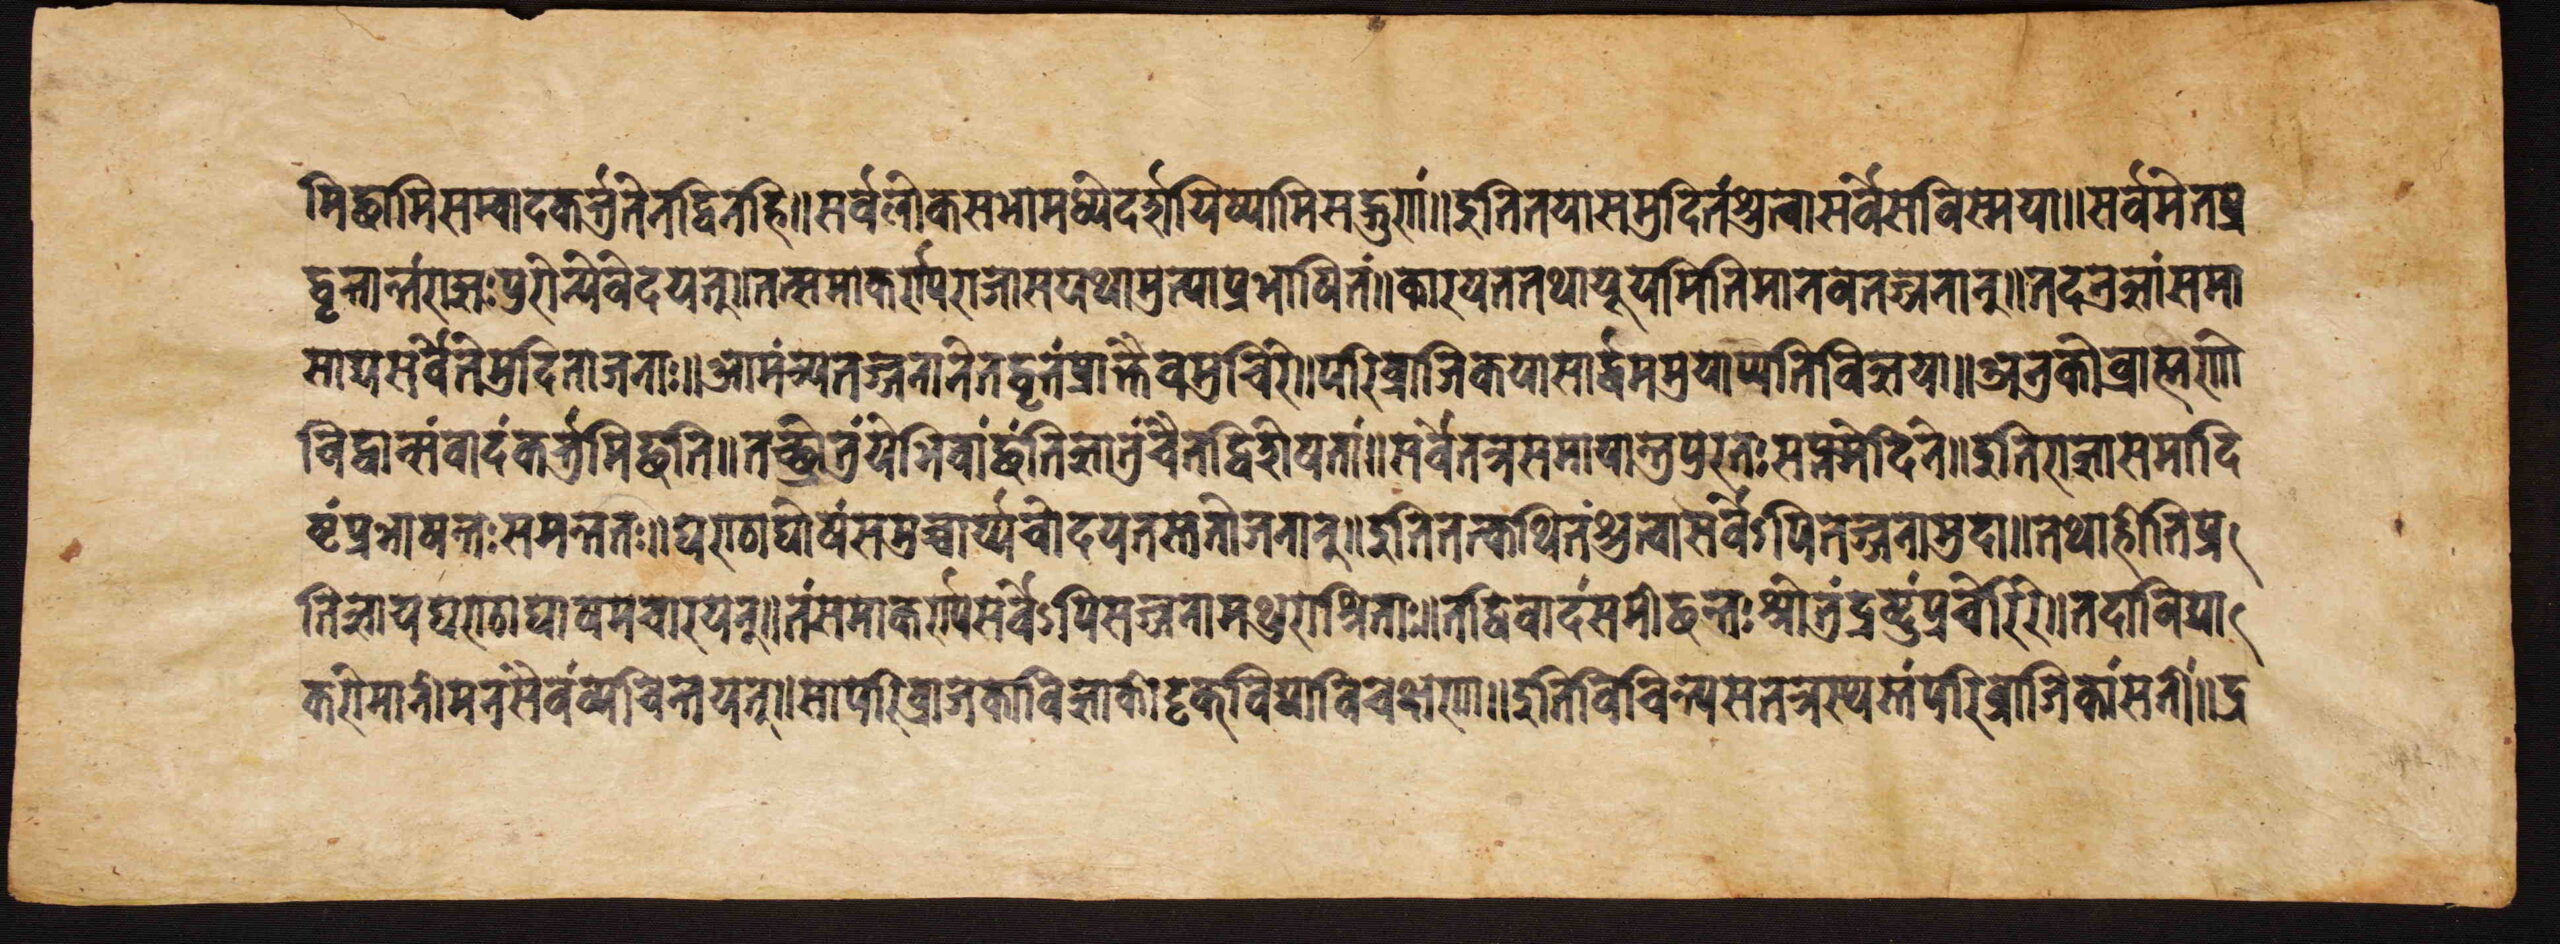 मिछामिसम्वादकर्त्तुंतेनद्विनहि॥सर्वलोकसभामध्येदर्शयिष्यामिसद्गुणां॥इतितयासमुदितंश्रुत्वासर्वेसविस्मया॥सर्वमेतत्प्र
द्वृत्तान्तंराज्ञःपुरोन्यवेदयन्॥तत्समाकर्ण्यराजासयथामुत्याप्रभाषितं॥कारयतत्तथायूयमितिमानवतज्जनान्॥तदनुज्ञांसमा
साद्यसर्वेतेमुदिताजनाः॥आमंत्र्यतज्जनानेतद्वृत्तंप्राहैवमुचिरे॥परिव्राजिकयासार्द्धममुयाप्यतिविज्ञया॥अत्रकोब्राह्मणो
विद्वान्संवादंकर्त्तुमिछति॥तच्छ्रोतुंयेभिवांछंतिज्ञातुंचैतद्विशेषतां॥सर्वेतत्रसमायान्तुपुरतःसप्तमेदिने॥इतिराज्ञासमादि
ष्टंप्रभाषन्तःसमन्ततः॥घण्टाघोषंसमुच्चार्य्यचोदयतस्ततोजनान्॥इतितत्कथितंश्रुत्वासर्वेऽपितेज्जनामुदा॥तथाहीतिप्र
तिज्ञायघण्टाघोषमचारयन्॥तंसमाकर्ण्यसर्वेऽपिसज्जनामथुराश्रिताः॥तद्विवादंसमीछन्तःश्रोतुंद्रष्टुंप्रचेरिरे॥तदाविद्या
करोमानीमनसैवंव्यचिन्तयन्॥सापरिव्राजकाविज्ञाकीदृक्विद्याविचक्षणा॥इतिविचिन्त्यसतत्रस्थस्तांपरिव्राजिकांसतीं॥द्र